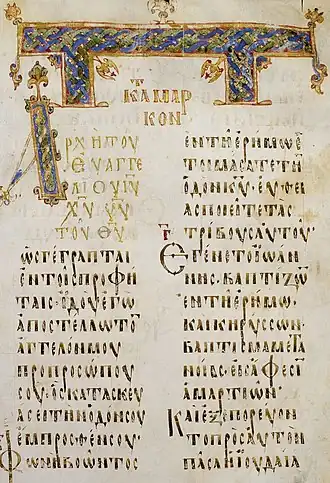 ΚΑΤΑ ΜΑΡ
ΚΟΝ
ΑΡΧΗ ΤΟΥ
ΕΥΑΓΓΕ
ΛΙΟΥ ΙΥ
ΧΥ ΥΥ
ΤΟΥ ΘΥ
ΩΣ ΓΕΓΡΑΠΤΑΙ
ΕΝ ΤΟΙΣ ΠΡΟΦΗ
ΤΑΙΣ· ΙΔΟΥ ΕΓΩ
ΑΠΟΣΤΕΛΛΩ ΤΟ̅
ΑΓΓΕΛΟΝ ΜΟΥ
ΠΡΟ ΠΡΟΣΩΠΟΥ
ΣΟΥ· ΟΣ ΚΑΤΑΣΚΕΥ
ΑΣΕΙ ΤΗΝ ΟΔΟΝ ΣΟΥ
ΕΜΠΡΟΣΘΕΝ ΣΟΥ·
ΦΩΝΗ ΒΟΩΝΤΟΣ
ΕΝ ΤΗ ΕΡΗΜΩ Ε
ΤΟΙΜΑΣΑΤΕ ΤΗ̅
ΟΔΟΝ ΚΥ· ΕΥΘΕΙ
ΑΣ ΠΟΙΕΙΤΕ ΤΑΣ
ΤΡΙΒΟΥΣ ΑΥΤΟΥ·
ΕΓΕΝΕΤΟ ΙΩΑΝ
ΝΗΣ· ΒΑΠΤΙΖΩ̅
ΕΝ ΤΗ ΕΡΗΜΩ·
ΚΑΙ ΚΗΡΥΣΣΩΝ·
ΒΑΠΤΙΣΜΑ ΜΕΤΑ
ΝΟΙΑΣ· ΕΙΣ ΑΦΕΣΙ̅
ΑΜΑΡΤΙΩΝ·
ΚΑΙ ΕΞΕΠΟΡΕΥΟΝ
ΤΟ ΠΡΟΣ ΑΥΤΟΝ
ΠΑΣΑ Η ΙΟΥΔΑΙΑ